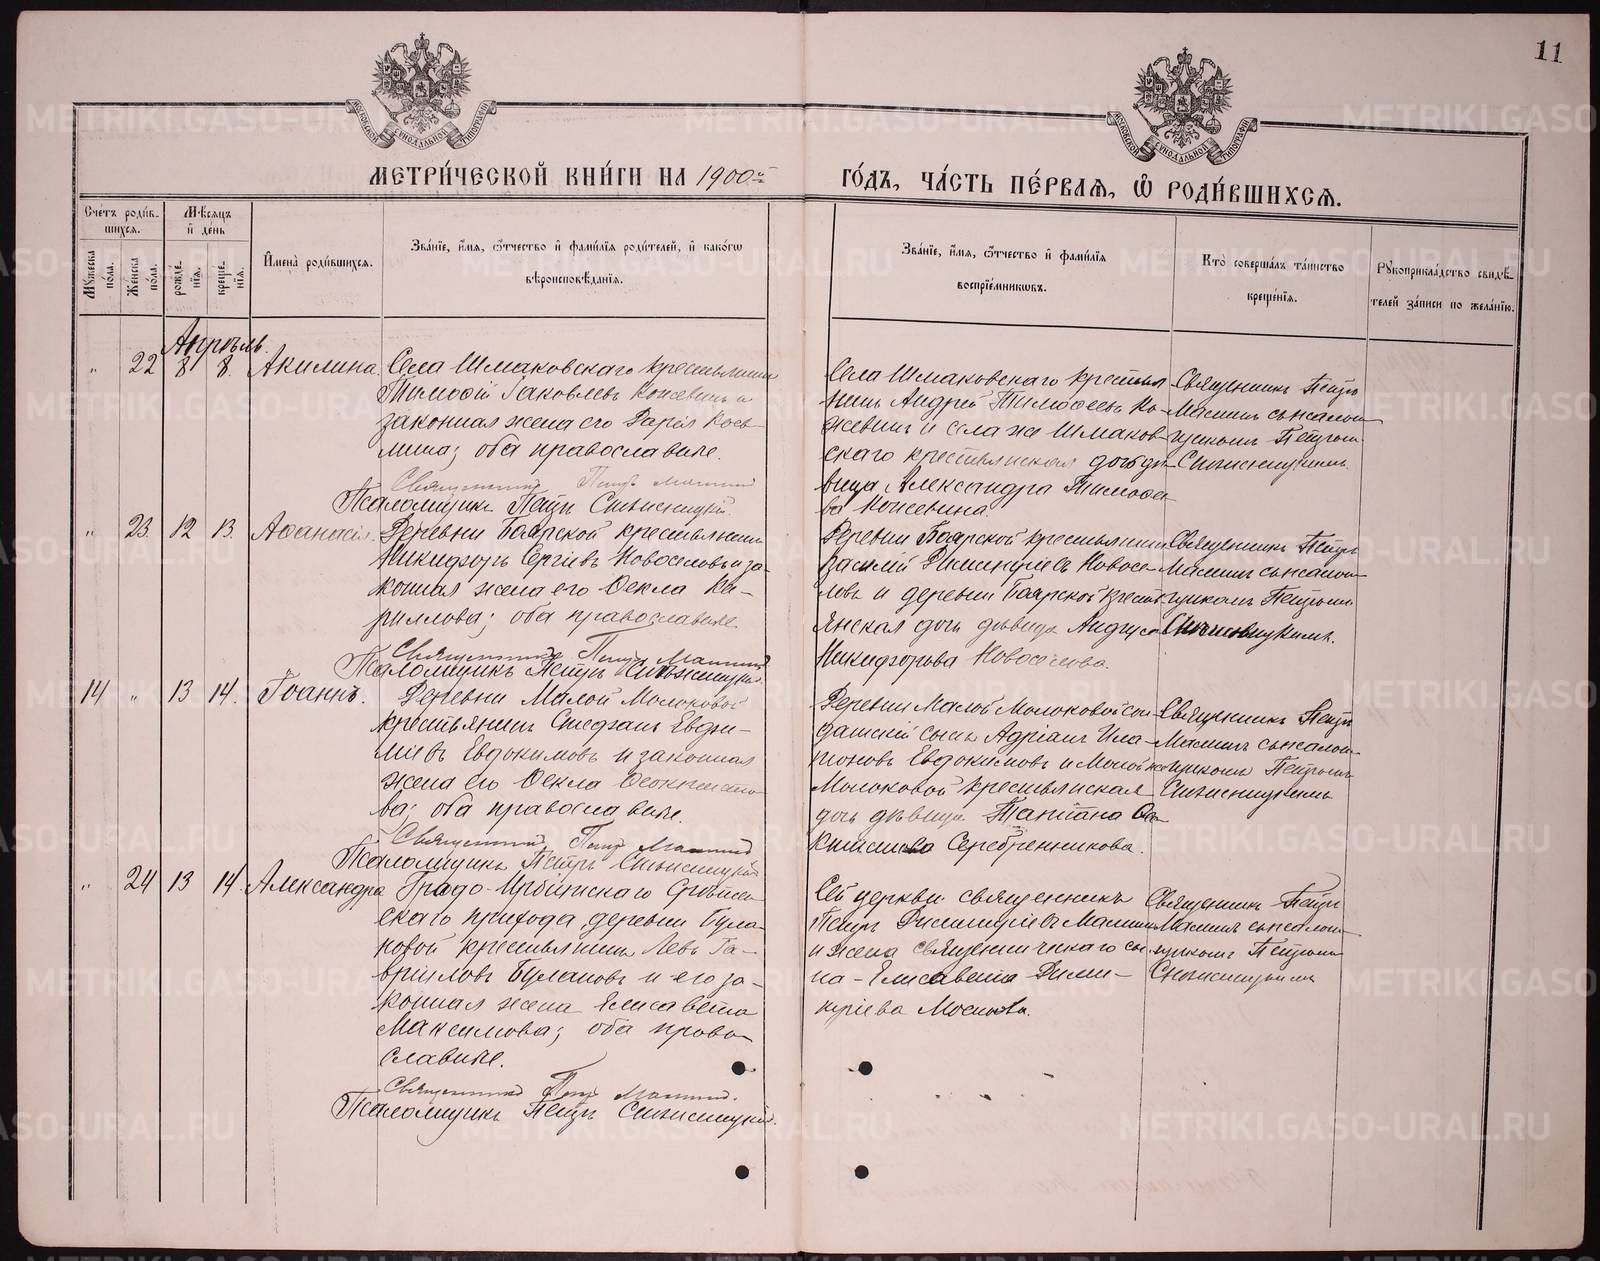 11
МЕТРИ́ЧЕСКОЙ КНИ́ГИ НА 1900-й
ГО́ДЪ, ЧА́СТЬ ПЕ́РВАѦ, Ѡ҆ РОДИ́ВШИХСѦ.
Сче́тъ роди́в-
шихся.
Му́жеска по́ла.
Же́нска по́ла.
Мѣ́сяцъ и҆ де́нь
рожде́-
нїѧ.
креще́-
нїѧ.
И҆мена̀ роди́вшихся.
Зва́нїе, и҆́мя, ѻ҆́тчество и҆ фами́лїя роди́телей, и҆ како́гѡ
вѣроисповѣ́данїя.
Зва́нїе, и҆́мя, ѻ҆́тчество и҆ фами́лїя
воспрїе́мникѡвъ.
Кто̀ соверша́лъ та́инство
креще́нїя.
Рукоприкла́дство свидѣ́-
телей за́писи по жела́нїю.
Апрѣль.
" 22 8 8. Акилина
Села Шмаковскаго крестьянинъ
Тимоѳій Іаковлевъ Кожевинъ и
законная жена его Дарія Козь-
мина; оба православные.
Священникъ Петръ Маминъ
Псаломщикъ Петръ
Села Шмаковскаго крестья-
нинъ Андрей Тимоѳеевъ Ко-
жевинъ и села же Шмаков-
скаго крестьянская дочь дѣ-
вица Александра Тимоѳее-
ва Кожевина.
Священникъ Петръ
Маминъ съ псалом-
щикомъ Петромъ
" 23. 12 13. Аѳанасія.
Деревни Боярской крестьянинъ
Никифоръ Сергіевъ Новоселовъ и за-
конная жена его Ѳекла Ки-
риллова; оба православные
Священникъ Петръ Маминъ
Псаломщикъ Петръ
Деревни Боярской крестьянинъ
Василій Димитріевъ Новосе-
ловъ и деревни Боярской кресть-
янская дочь дѣвица
Никифорова Новоселова.
Священникъ Петръ
Маминъ съ псалом-
щикомъ Петромъ
14 " 13 14. Іоаннъ.
Деревни Малой Молоковой
крестьянинъ Стефанъ Евфи-
міевъ Евдокимовъ и законная
жена его Ѳекла Ѳеоктисто-
ва; оба православные.
Священникъ Петръ Маминъ
Псаломщикъ Петръ
Деревни Малой Молоковой сол-
датскій сынъ Адріанъ Пла-
тоновъ Евдокимовъ и Малой же
Молоковой крестьянская
дочь дѣвица Татіана
Серебренникова.
Священникъ Петръ
Маминъ съ псалом-
щикомъ Петромъ
" 24 13 14. Александра
Градо-Ирбитскаго Срѣтен-
скаго прихода, деревни Була-
новой крестьянинъ Левъ Га-
вриловъ Булановъ и его за-
конная жена Елисавета
Максимова; оба право-
славные.
Священникъ Петръ Маминъ.
Псаломщикъ Петръ
Сей церкви священникъ
Петръ Димитріевъ Маминъ
и жена священническаго сы-
на - Елисавета Дими-
тріева
Священникъ Петръ
Маминъ съ псалом-
щикомъ Петромъ
METRIKI.GASO-URAL.RU